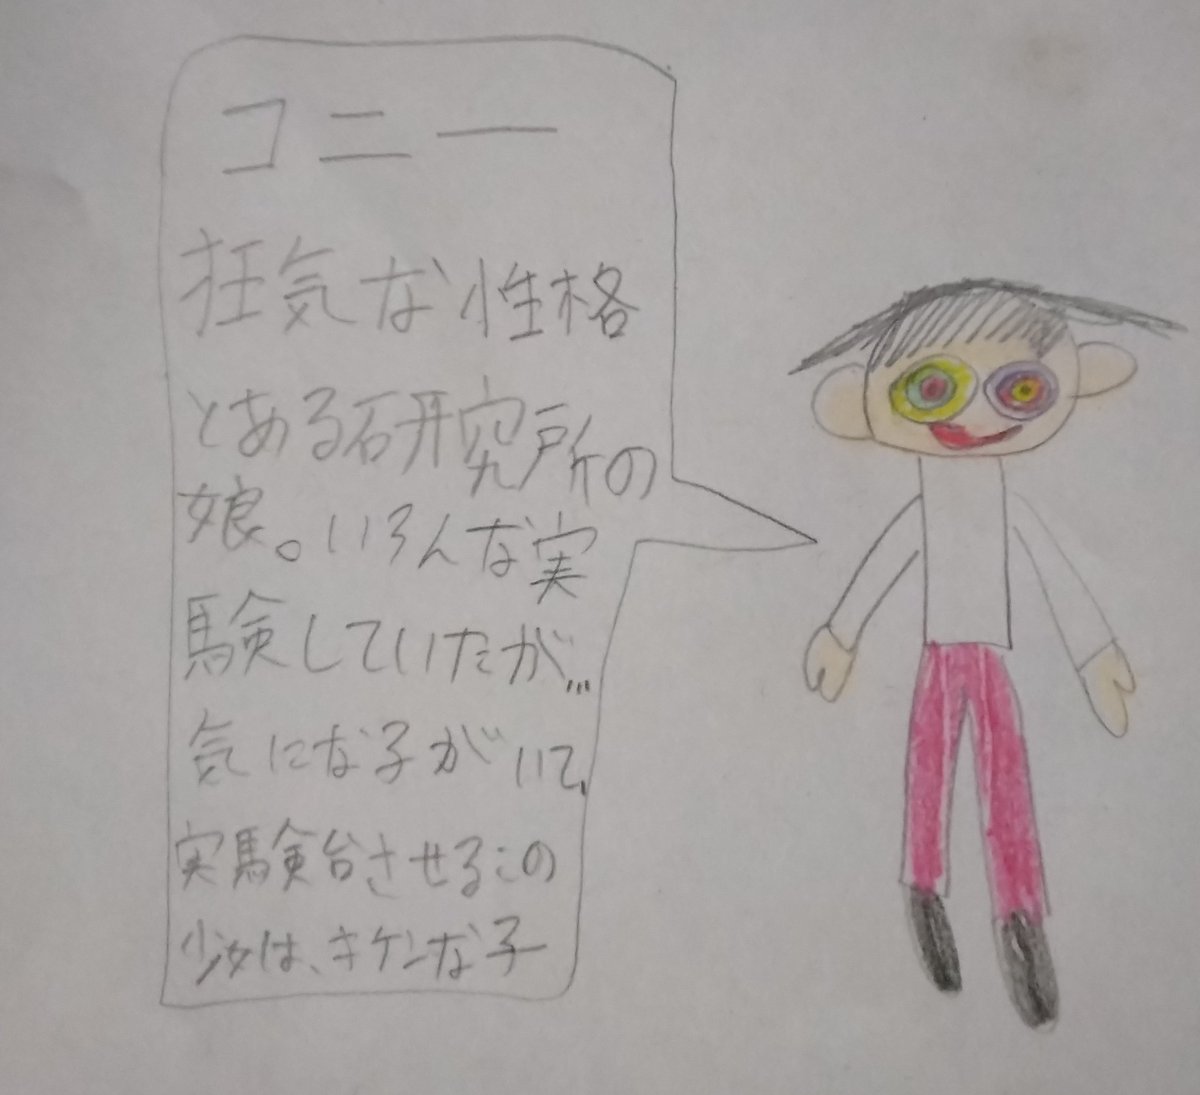 コニー
狂気な性格
とある石研究所の
娘。いろんな実
験していたが…
気になる子がいて、
実験台させるこの
少女は、キケンな子